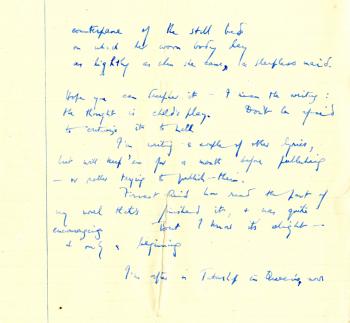 counterpane of the still bed
on which her worn body lay
as lightly as when she came, a sleepless maid.
Hope you can decipher it – I mean the writing:
the thought is child's play. Don't be afraid
to criticise it to hell
I'm writing a couple of other lyrics,
but will keep 'em for a month before publishing
– or rather trying to publish – them.
Forrest Reid has read the part of
my novel that's finished it, & was quite
encouraging but I know its alright –
& only a beginning
I'm after a in now